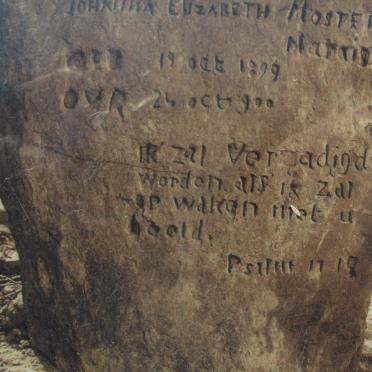 JOHANNA ELIZABETH MOSTER
Martie
GEB 19 oct 1899
OVR 26 oct 900
ik zal Verzadigd
worden als ik zal
op waken met u
beeld.
Psalm 17 18